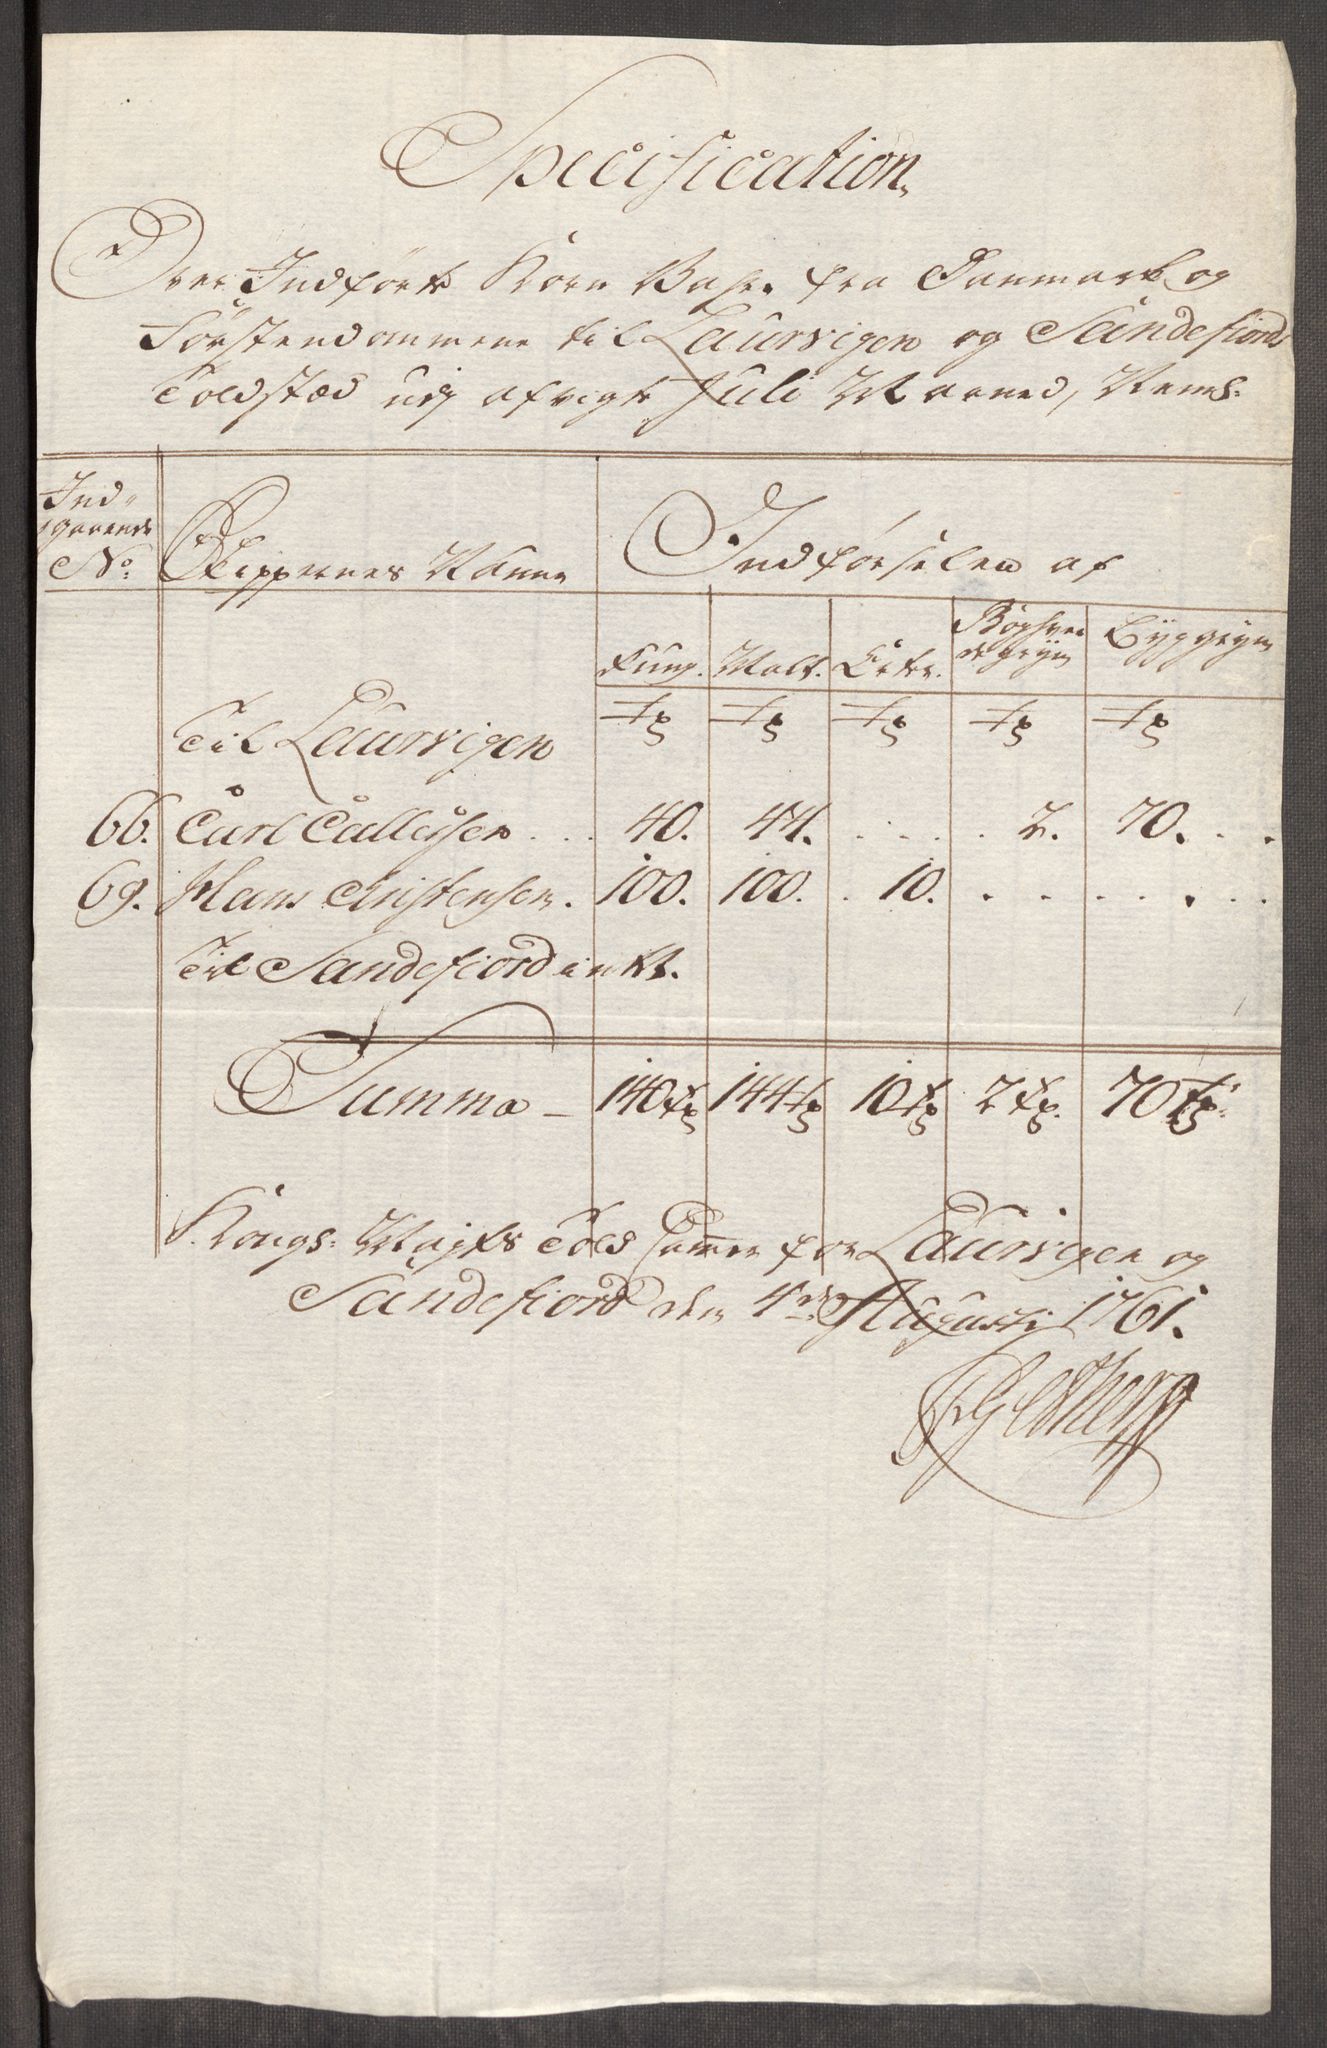 Specification
Over Indförte Korn Vahre fra Danmark og
Förstendommene til Laurvigen og Sandefiords
Toldstæd udj afvigte Julij Maaned, Nemlig:
Ind-
gaaende
No: Skippernes Nafne Indförselen af
Rug. Malt. Erter. Boghve- Byggryn
de gryn
Til Laurvigen Tr Tr Tr Tr Tr
66. Carl Callesen . . . 40. 44. . . . . 2. 70. . .
69. Hans Christensen. 100. 100. . 10. . . . . . . . .
Til Sandefiord intet.
Summa - 140 Tr 144 Tr 10 Tr 2 Tr. 70 Tr.
Kongs: Mayts Told Cammer for Laurvigen og
Sandefiord den 4de Augusti 1761.